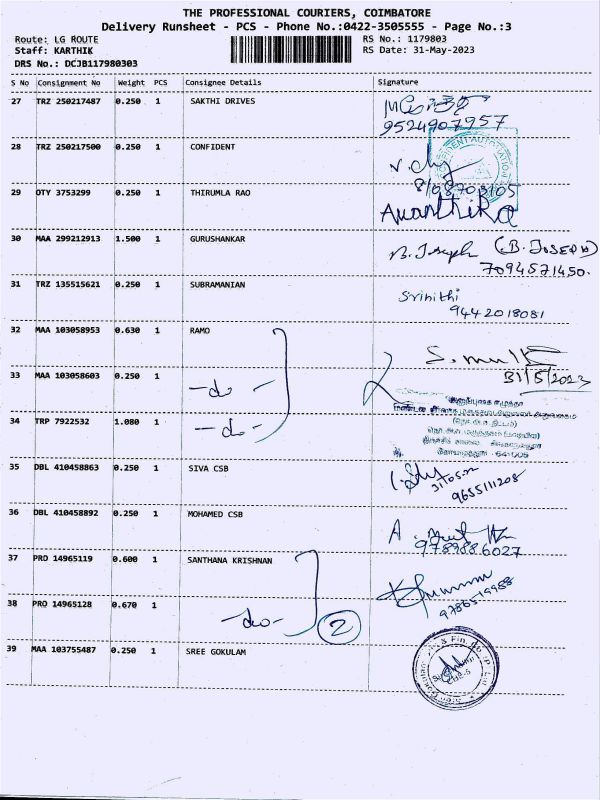 THE PROFESSIONAL COURIERS, COIMBATORE
Delivery Runsheet - PCS - Phone No.:0422-3505555 - Page No.:3
Route: LG ROUTE RS No.: 1179803
Staff: KARTHIK RS Date: 31-May-2023
DRS No.: DCJB117980303
S No Consignment No Weight PCS Consignee Details Signature
27 TRZ 250217487 0.250 1 SAKTHI DRIVES
9524907957
28 TRZ 250217500 0.250 1 CONFIDENT
29 OTY 3753299 0.250 1 THIRUMLA RAO
Ananthika
30 MAA 299212913 1.500 1 GURUSHANKAR B. Joseph (B. JOSEPH)
7094571450.
31 TRZ 135515621 0.250 1 SUBRAMANIAN Srinithi
9442018081
32 MAA 103058953 0.630 1 RAMO
33 MAA 103058603 0.250 1 31/5/2023
-do-
34 TRP 7922532 1.080 1
-do-
641005
35 DBL 410458863 0.250 1 SIVA CSB
9655111208
36 DBL 410458892 0.250 1 MOHAMED CSB
37 PRO 14965119 0.600 1 SANTHANA KRISHNAN
38 PRO 14965128 0.670 1
-do- 2
39 MAA 103755487 0.250 1 SREE GOKULAM